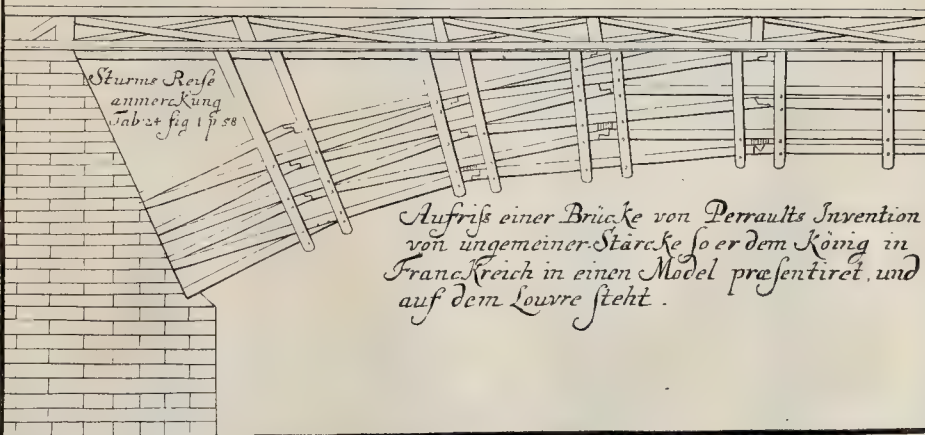 Sturms Reise
anmerckung
Tab 24 fig 1 p 58
Aufriſs einer Brücke von Perraults Invention
von ungemeiner Stärcke ſo er dem König in
Franckreich in einen Model præſentiret, und
auf dem Louvre ſteht.